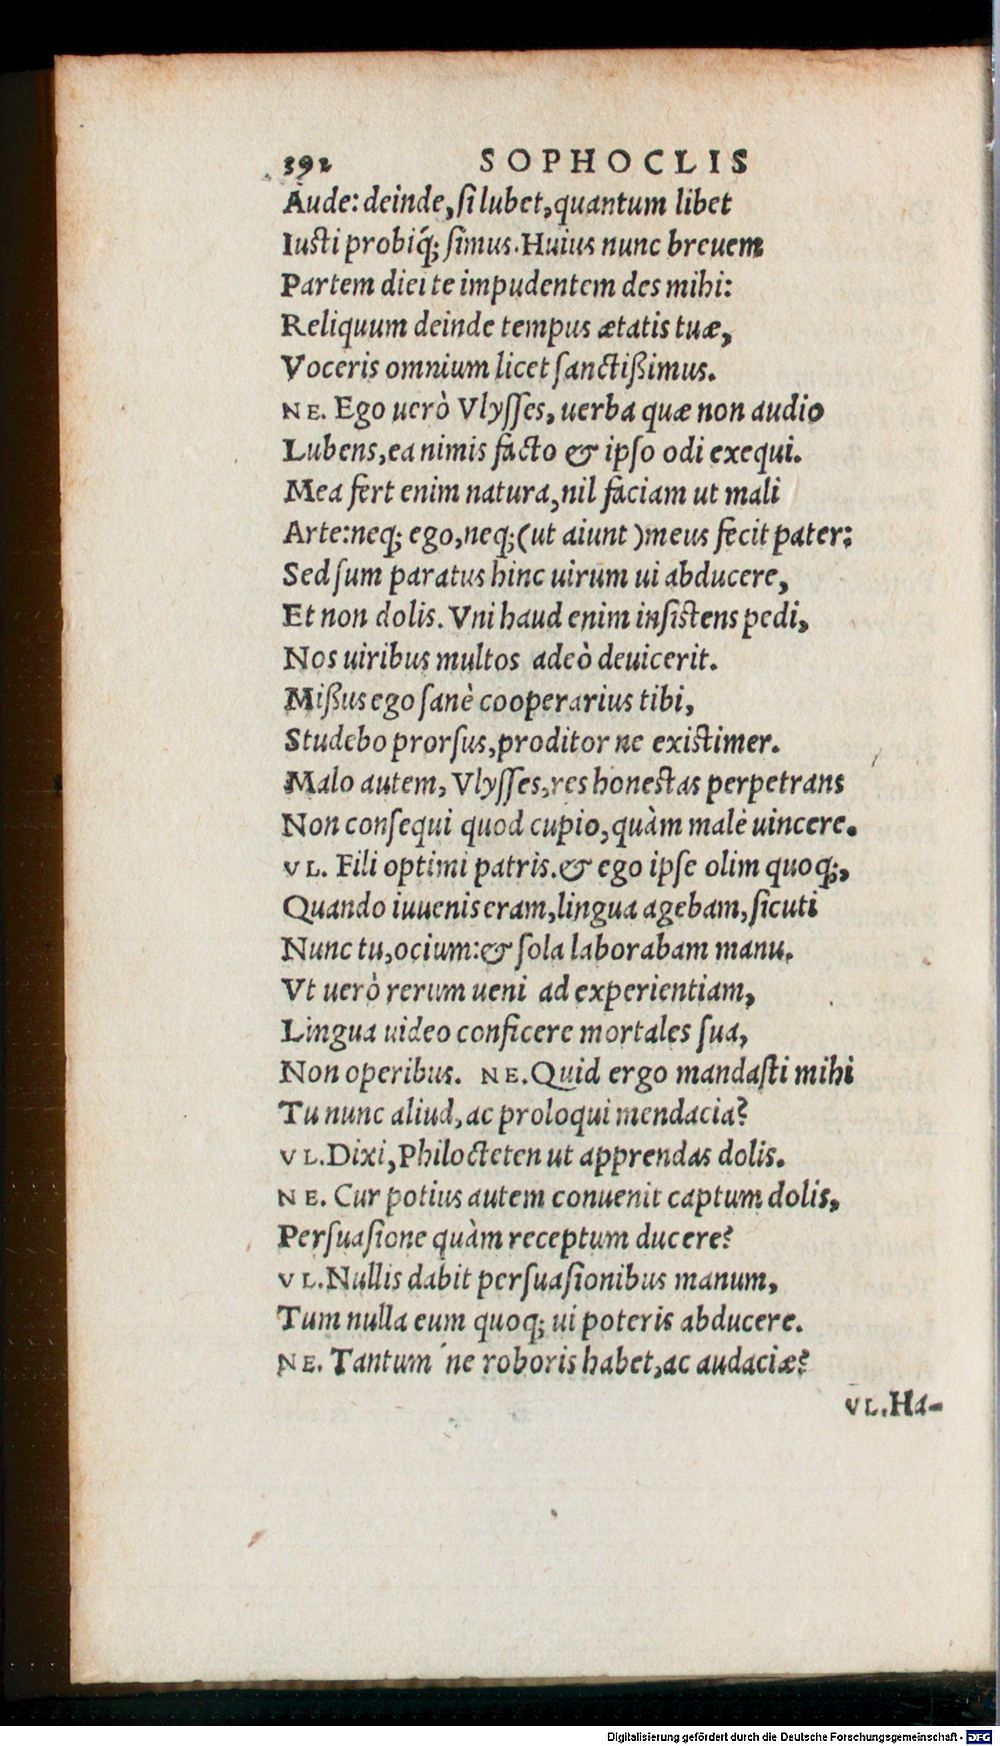 392 SOPHOCLIS
Aude: deinde, si lubet, quantum libet
Iusti probiq́; simus. Huius nunc breuem
Partem diei te impudentem des mihi:
Reliquum deinde tempus ætatis tuæ,
Voceris omnium licet sanctißimus.
NE. Ego uerò Vlysses, uerba quæ non audio
Lubens, ea nimis facto & ipso odi exequi.
Mea fert enim natura, nil faciam ut mali
Arte: neq; ego, neq; (ut aiunt) meus fecit pater:
Sed sum paratus hinc uirum ui abducere,
Et non dolis. Vni haud enim insistens pedi,
Nos uiribus multos adeò deuicerit.
Mißus ego sanè cooperarius tibi,
Studebo prorsus, proditor ne existimer.
Malo autem, Vlysses, res honestas perpetrans
Non consequi quod cupio, quàm malè uincere.
VL. Fili optimi patris. & ego ipse olim quoq;,
Quando iuuenis eram, lingua agebam, sicuti
Nunc tu, ocium: & sola laborabam manu.
Vt uerò rerum ueni ad experientiam,
Lingua uideo conficere mortales sua,
Non operibus. NE. Quid ergo mandasti mihi
Tu nunc aliud, ac proloqui mendacia?
VL. Dixi, Philocteten ut apprendas dolis.
NE. Cur potius autem conuenit captum dolis,
Persuasione quàm receptum ducere?
VL. Nullis dabit persuasionibus manum,
Tum nulla eum quoq; ui poteris abducere.
NE. Tantum ́ne roboris habet, ac audaciæ?
VL. Ha-
Digitalisierung gefördert durch die Deutsche Forschungsgemeinschaft - DFG